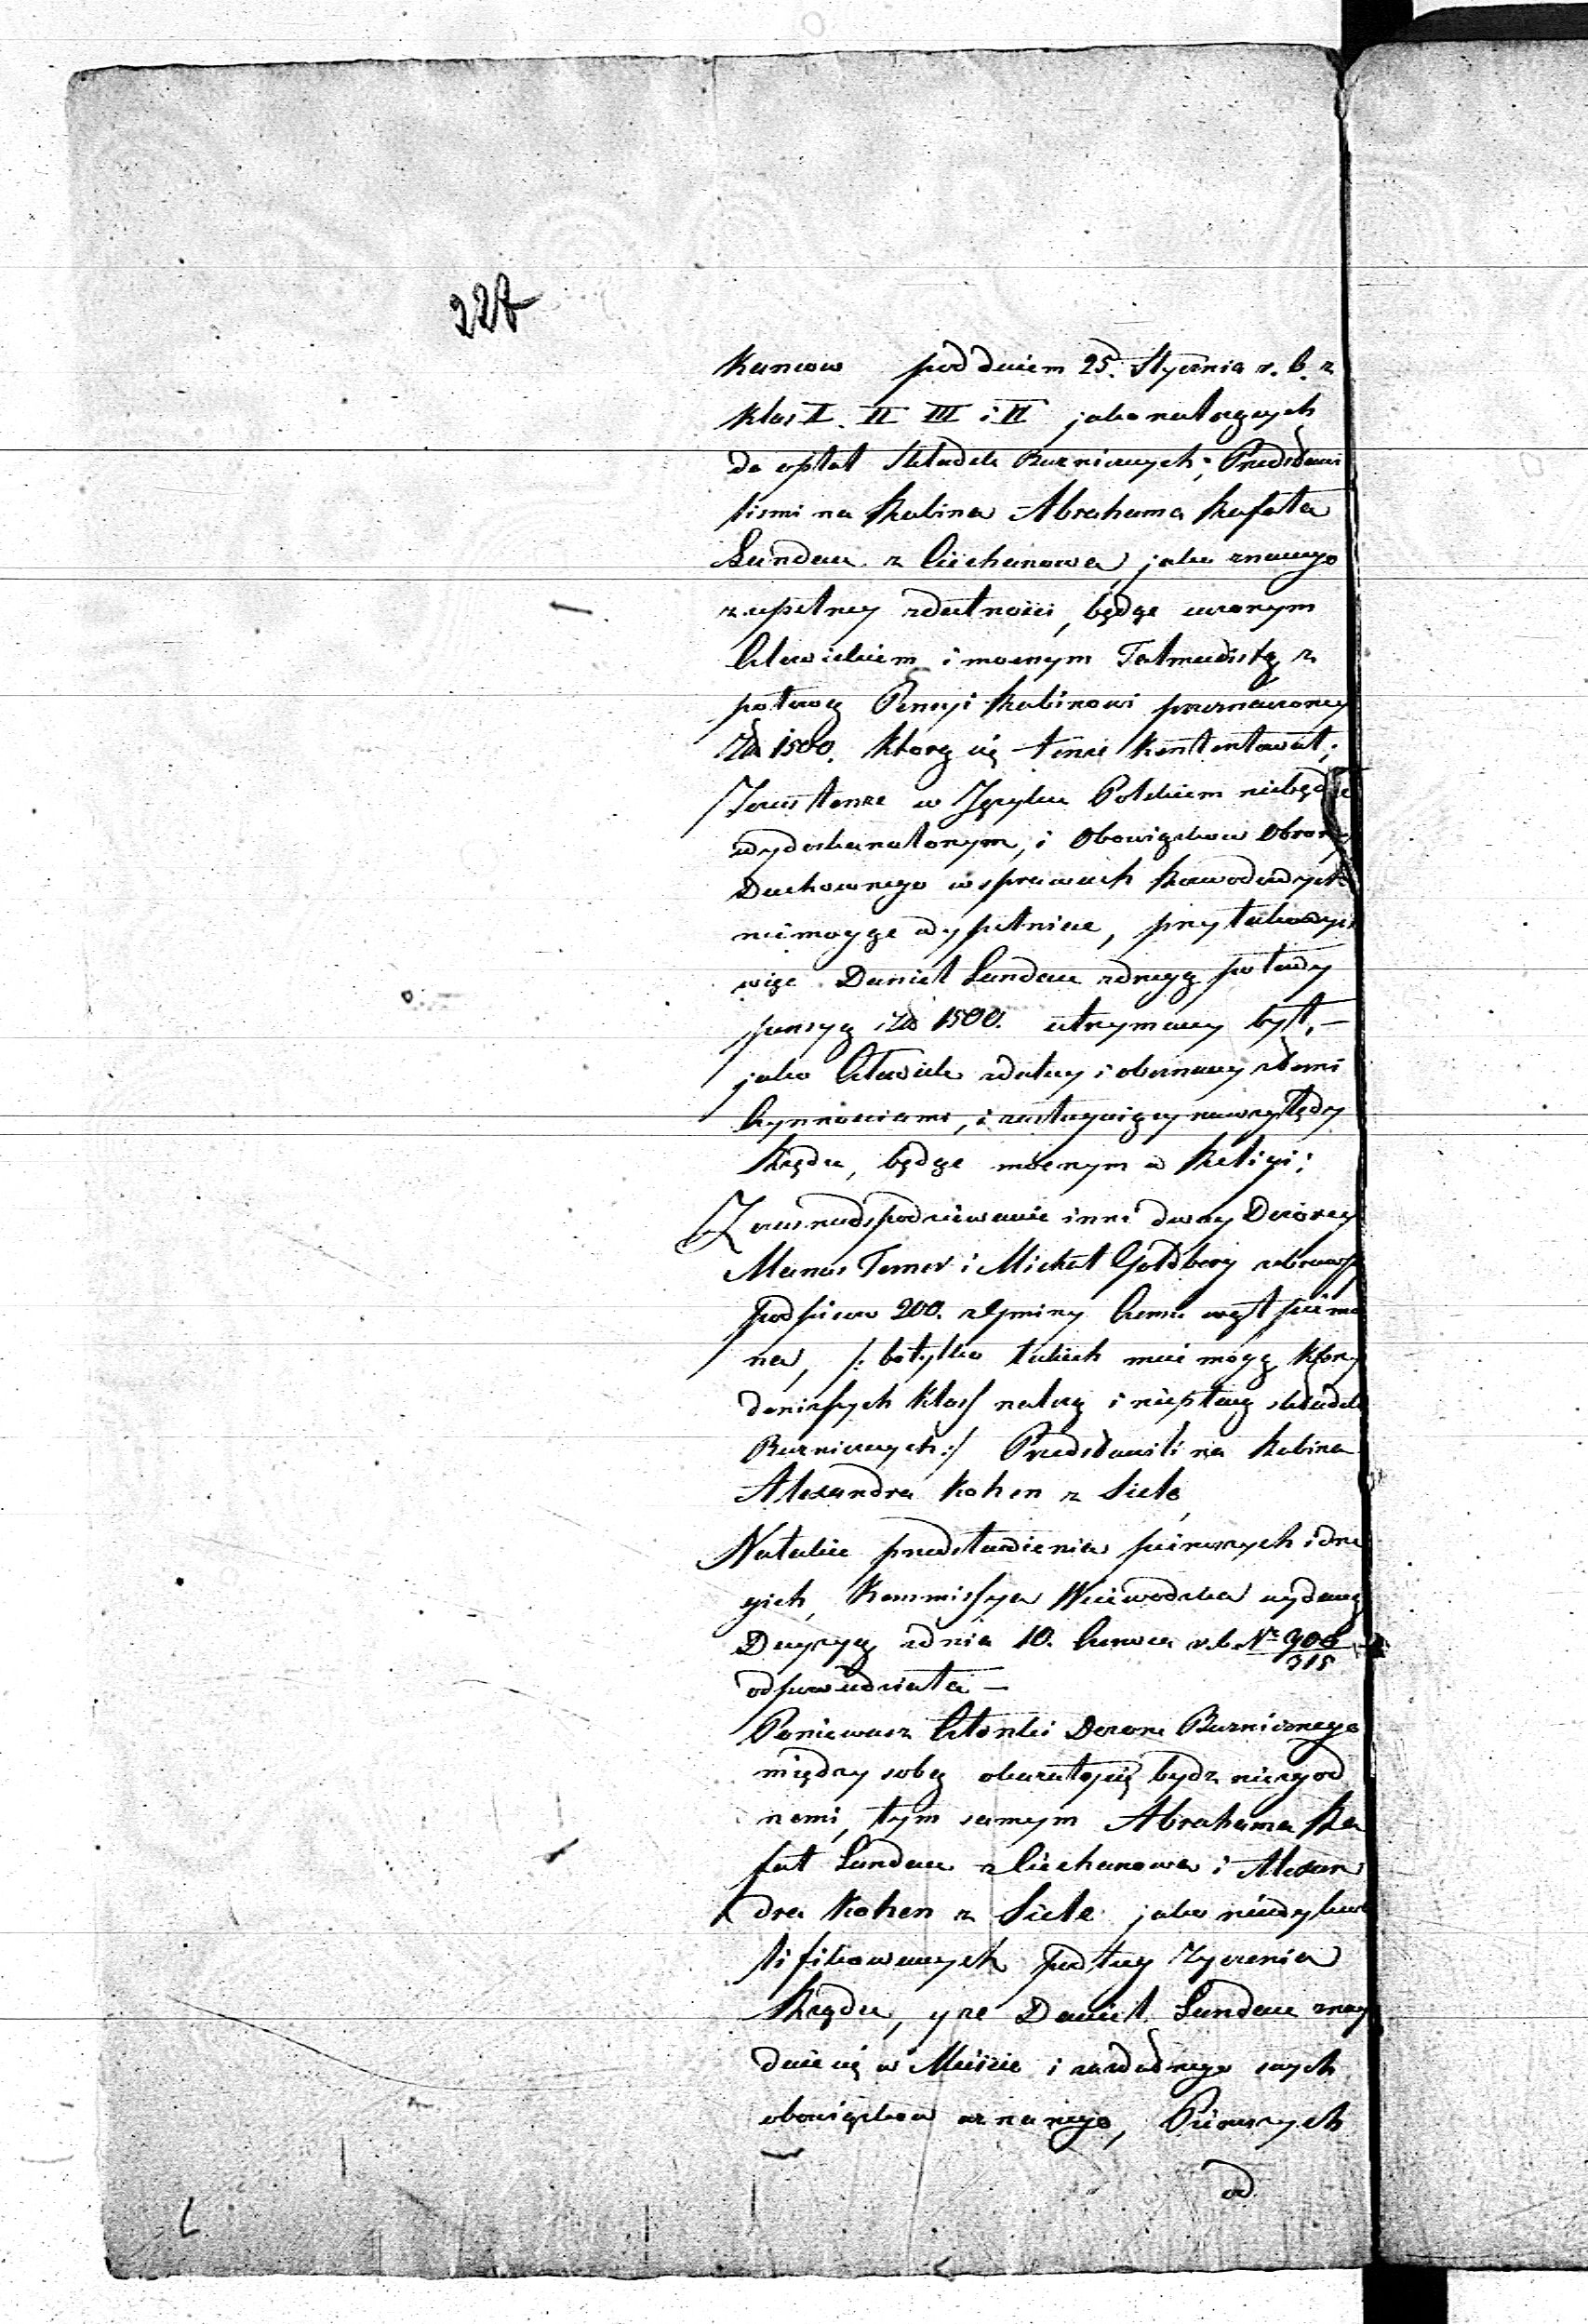 227
kancow pod dniem 25. Stycznia r. b. z
klas I. II III i IV jako należących
do opłat Składek Buznicznych; Przedstawi
liśmi na Rabina Abrahama Rafała
Landau z Ciechanowa, jako znanego
zupełney zdatności, będąc uczonym
Człowiekiem i mocnym Talmudistą z
połową Pensyi Rabinowi przeznaczoney
Zł 1500. którą się tenże kontentował;
Zaś tenże w Języku Polskim niebędąc
wydoskonalonym, i Obowiązków Obrony
Duchownego w sprawach Rozwodowych
niemogąc wypełniać, przy takowych
więc Daniel Landau z drugą połową
pensyą Zło 1500. utrzymany był, —
jako Człowiek zdatny i obeznany z temi
czynnościami, i zasługujący na względy
Rządu, będąc mocnym w Religii;
Zaś nadspodziewanie inni dway Dozorcy
Manas Temer i Michał Goldberg zebrawszy
podpisów 200. z Gminy
na, /: bo tylko takich mieć mogą, którzy
do niższych klass należą i niepłacą składek
Buznicznych :/ Przedstawili na Rabina
Alexandra Kohen z Siele,
Na takie przedstawienia pierwszych i dru
gich, Kommissya Woiewodzka wydaną
Decyzyą z dnia 10. Czerwca r. b. Nr 906/315
odpowiedziała —
Poniewasz Członki Dozoru Buznicznego
między sobą okazało się bydź niezgod
nemi, tym samym Abrahama Ra
fał Landau z Ciechanowa i Alexan
dra Kohen z Siele jako niekwa
lifikowanych podług życzenia
Rządu, y że Daniel Landau znay
duie się w Mieście i zdatnego swych
obowiązków uznanego, Pierwszych
od